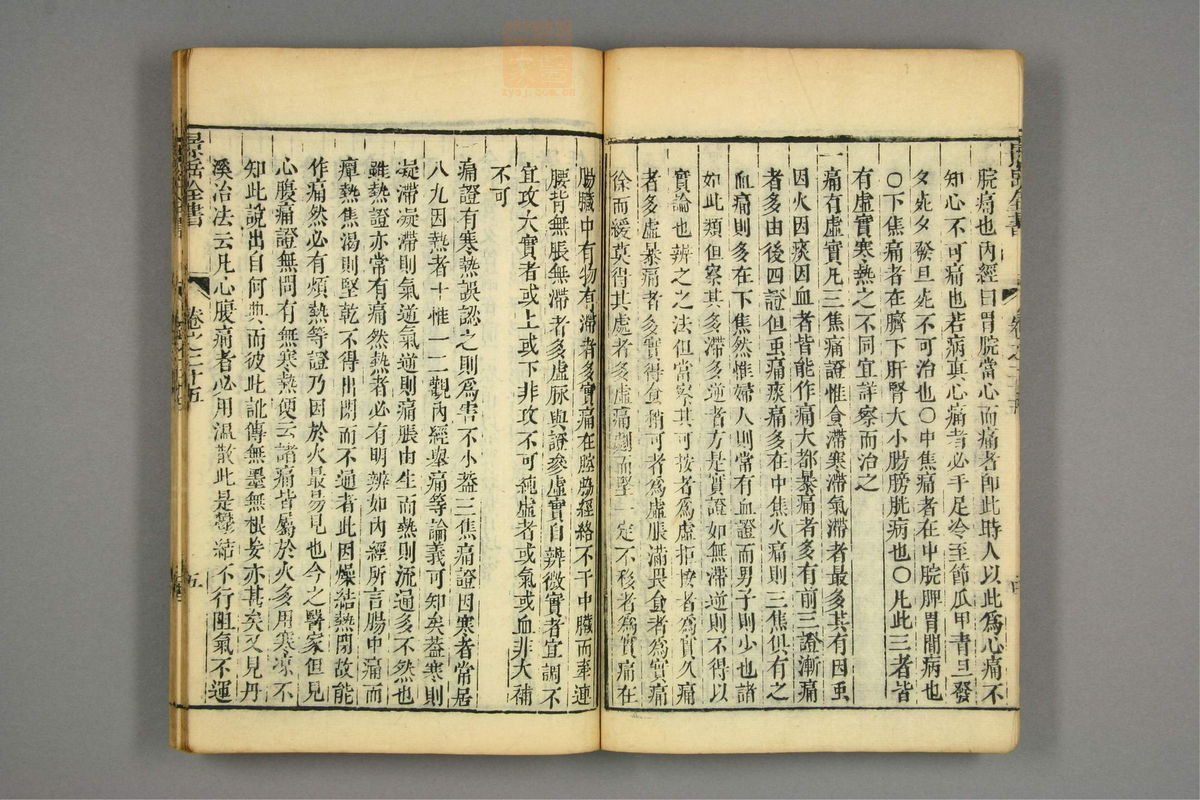 脘痛也內經曰胃脘當心而痛者卽此時人以此爲心痛不
知心不可痛也若病眞心痛者必手足冷至節爪甲青旦發
夕死夕發旦死不可治也〇中焦痛者在中脘脾胃間病也
〇下焦痛者在臍下肝腎大小腸膀胱病也〇凡此三者皆
有虛實寒熱之不同宜詳察而治之
一痛有虛實凡三焦痛證惟食滯寒滯氣滯者最多其有因虫
因火因痰因血者皆能作痛大都暴痛者多有前三證漸痛
者多由後四證但虫痛痰痛多在中焦火痛則三焦俱有之
血痛則多在下焦然惟婦人則常有血證而男子則少也諸
如此類但察其多滯多逆者方是實證如無滯逆則不得以
實論也辨之之法但當察其可按者爲虛拒按者爲實久痛
者多虛暴痛者多實得食稍可者爲虛脹滿畏食者爲實痛
徐而緩莫得其處者多虛痛劇而堅一定不移者爲實痛在
腸臟中有物有滯者多實痛在腔脇經絡不干中臟而牽連
腰背無脹無滯者多虛脉與證參虛實自辨微實者宜調不
宜攻大實者或上或下非攻不可純虛者或氣或血非大補
不可
痛證有寒熱誤認之則爲害不小葢三焦痛證因寒者常居
八九因熱者十惟一二觀內經舉痛等論義可知矣葢寒則
凝滯凝滯則氣逆氣逆則痛脹由生而熱則流通多不然也
雖熱證亦常有痛然熱者必有明辨如內經所言腸中痛而
癉熱焦渴則堅乾不得出閉而不通者此因燥結熱閉故能
作痛然必有煩熱等證乃因於火最易見也今之醫家但見
心腹痛證無問有無寒熱便云諸痛皆屬於火多用寒凉不
知此說出自何典而彼此訛傳無墨無根妄亦甚矣又見丹
溪治法云凡心腹痛者必用溫散此是鬱結不行阻氣不運
景岳全書
卷之二十五
五